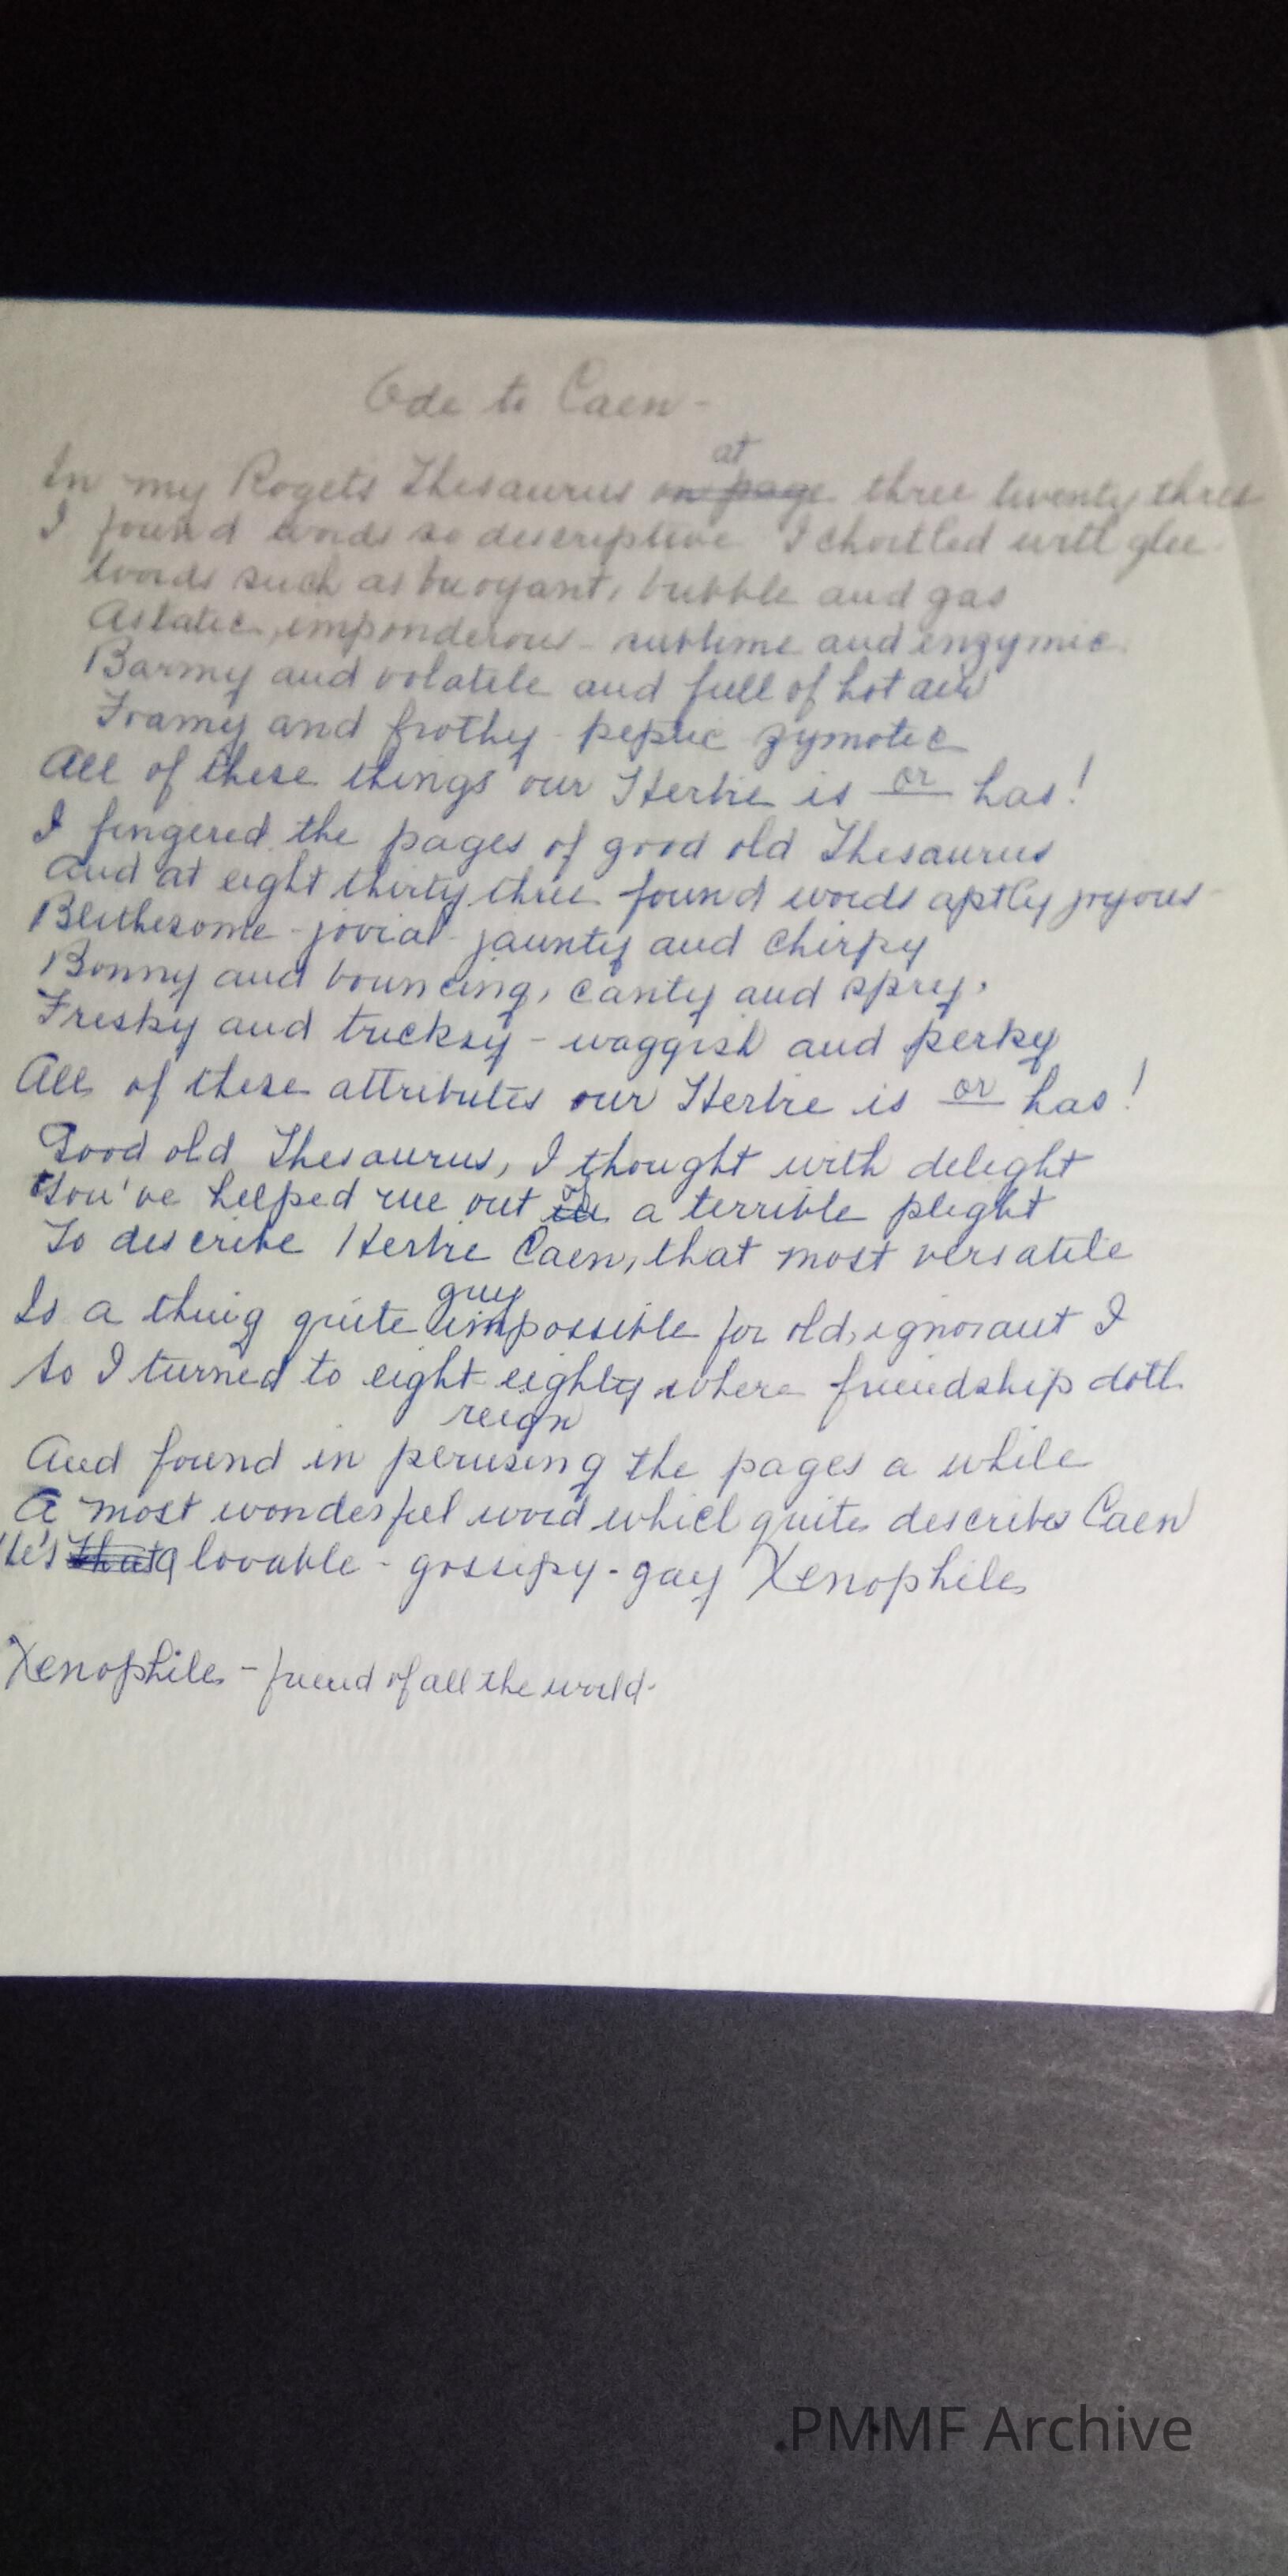 Ode to Caen -
at
In my Rogets Thesaurus on page three twenty three
I found words so descriptive I chortled with glee
Words such as buoyant, bubble and gas
Astatic, imponderous - sublime and enzymic
Barmy and volatile and full of hot air
Foamy and frothy - peptic zymotic
All of these things our Herbie is or has!
I fingered the pages of good old Thesaurus
And at eight thirty three found words aptly joyous
Blithesome - jovial - jaunty and chirpy
Bonny and bouncing, canty and spry,
Frisky and tricksy - waggish and perky
All of these attributes our Herbie is or has!
Good old Thesaurus, I thought with delight
You've helped me out a terrible plight
To describe Herbie Caen, that most versatile
guy
Is a thing quite impossible for old, ignorant I
So I turned to eight eighty where friendship doth
reign
And found in perusing the pages a while
A most wonderful word which quite describes Caen
He's that a lovable - gossipy - gay Xenophile
Xenophile - friend of all the world.
PMMF Archive